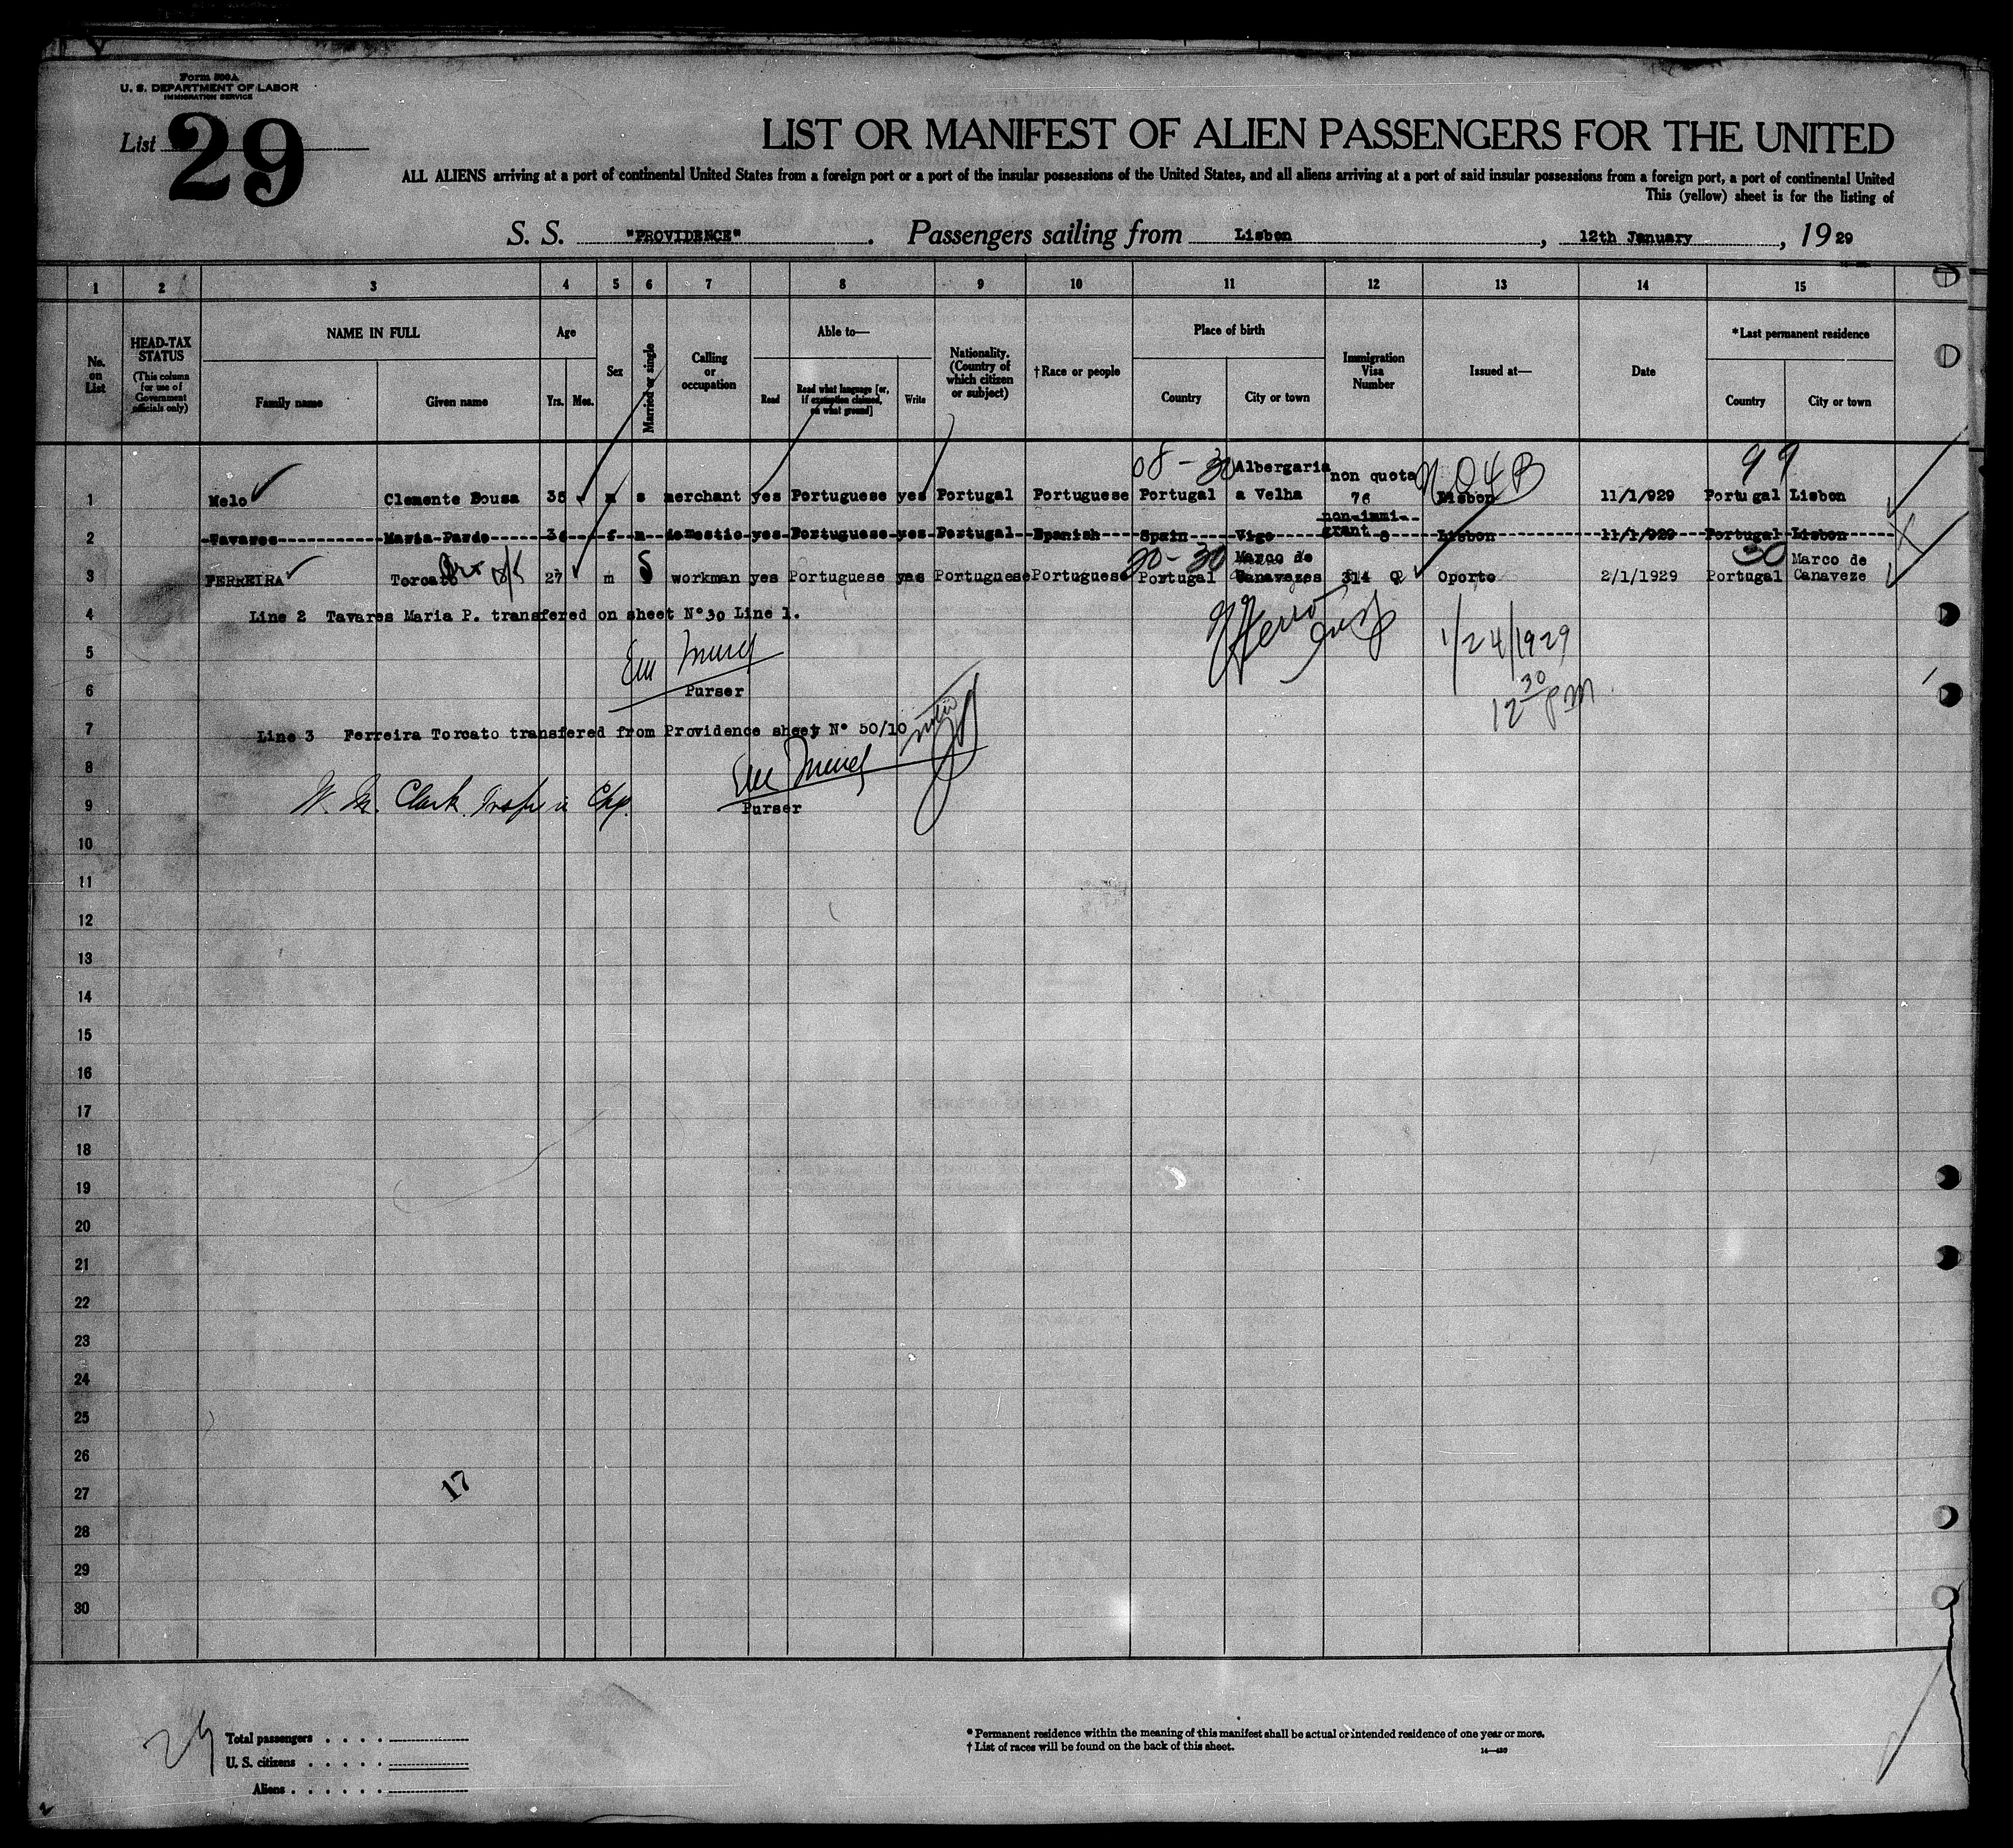 Form 500A
U. S. DEPARTMENT OF LABOR
IMMIGRATION SERVICE
List 29
LIST OR MANIFEST OF ALIEN PASSENGERS FOR THE UNITED
ALL ALIENS arriving at a port of continental United States from a foreign port or a port of the insular possessions of the United States, and all aliens arriving at a port of said insular possessions from a foreign port, a port of continental United
This (yellow) sheet is for the listing of
S. S. "PROVIDENCE". Passengers sailing from Lisbon, 12th January, 1929
1 2 3 4 5 6 7 8 9 10 11 12 13 14 15
No. on List
HEAD-TAX STATUS
(This column for use of Government officials only)
NAME IN FULL
Family name Given name
Age
Yrs. Mos.
Sex
Married or single
Calling or occupation
Able to—
Read
Read what language [or, if exemption claimed, on what ground]
Write
Nationality. (Country of which citizen or subject)
†Race or people
Place of birth
Country City or town
Immigration Visa Number
Issued at—
Date
*Last permanent residence
Country City or town
08-30 99
1 Melo Clemente Sousa 35 m s merchant yes Portuguese yes Portugal Portuguese Portugal Albergaria a Velha non quota 76 Lisbon 11/1/929 Portugal Lisbon
2 Tavares Maria Pardo 34 f m domestic yes Portuguese yes Portugal Spanish Spain Vigo non-immigrant 8 Lisbon 11/1/929 Portugal Lisbon
20-30 30
3 FERREIRA Torcato 27 m S workman yes Portuguese yes Portuguese Portuguese Portugal Marco de Canavezes 314 Q Oporto 2/1/1929 Portugal Marco de Canaveze
4 Line 2 Tavares Maria P. transfered on sheet N° 30 Line 1.
5 1/24/1929
6 Purser
12 30 PM
7 Line 3 Ferreira Torcato transfered from Providence sheet N° 50/10
8
9 W. M. Clark Purser
10
11
12
13
14
15
16
17
18
19
20
21
22
23
24
25
26
27 17
28
29
30
Total passengers . . . .
U. S. citizens . . . . .
Aliens . . . . . .
* Permanent residence within the meaning of this manifest shall be actual or intended residence of one year or more.
† List of races will be found on the back of this sheet.